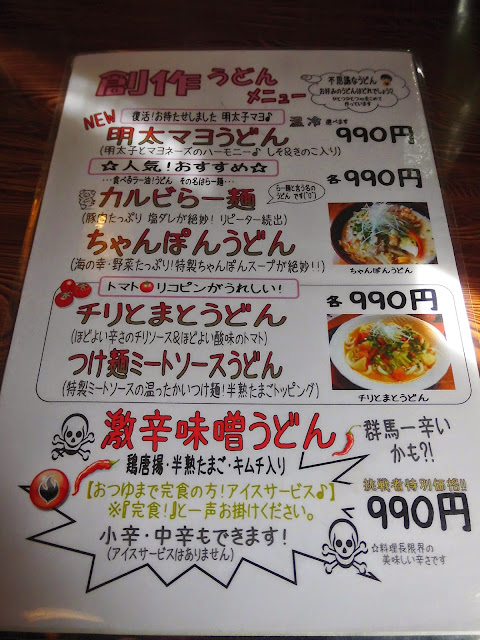 創作うどんメニュー
不思議なうどん
お好みのうどんはどれでしょう?
ひとつひとつ心をこめて
作っています
NEW 復活!お待たせしました 明太子マヨ♪
明太マヨうどん 温冷 選べます 990円
(明太子とマヨネーズのハーモニー♪ しそ&きのこ入り)
☆人気!おすすめ☆
…食べるラー油!うどん その名はらー麺… 各990円
カルビらー麺
らー麺と言う名の
うどんです(^0^)
(豚肉たっぷり 塩ダレが絶妙! リピーター続出)
ちゃんぽんうどん
(海の幸・野菜たっぷり!特製ちゃんぽんスープが絶妙!!)
ちゃんぽんうどん
トマト リコピンがうれしい! 各990円
チリとまとうどん
(ほどよい辛さのチリソース&ほどよい酸味のトマト)
つけ麺ミートソースうどん
(特製ミートソースの温ったかいつけ麺!半熟たまごトッピング)
チリとまとうどん
激辛味噌うどん
群馬一辛い
かも?!
鶏唐揚・半熟たまご・キムチ入り
【おつゆまで完食の方!アイスサービス♪】
※『完食!』と一声お掛けください。
挑戦者特別価格!!
990円
小辛・中辛もできます!
(アイスサービスはありません)
☆料理長限界の
美味しい辛さです